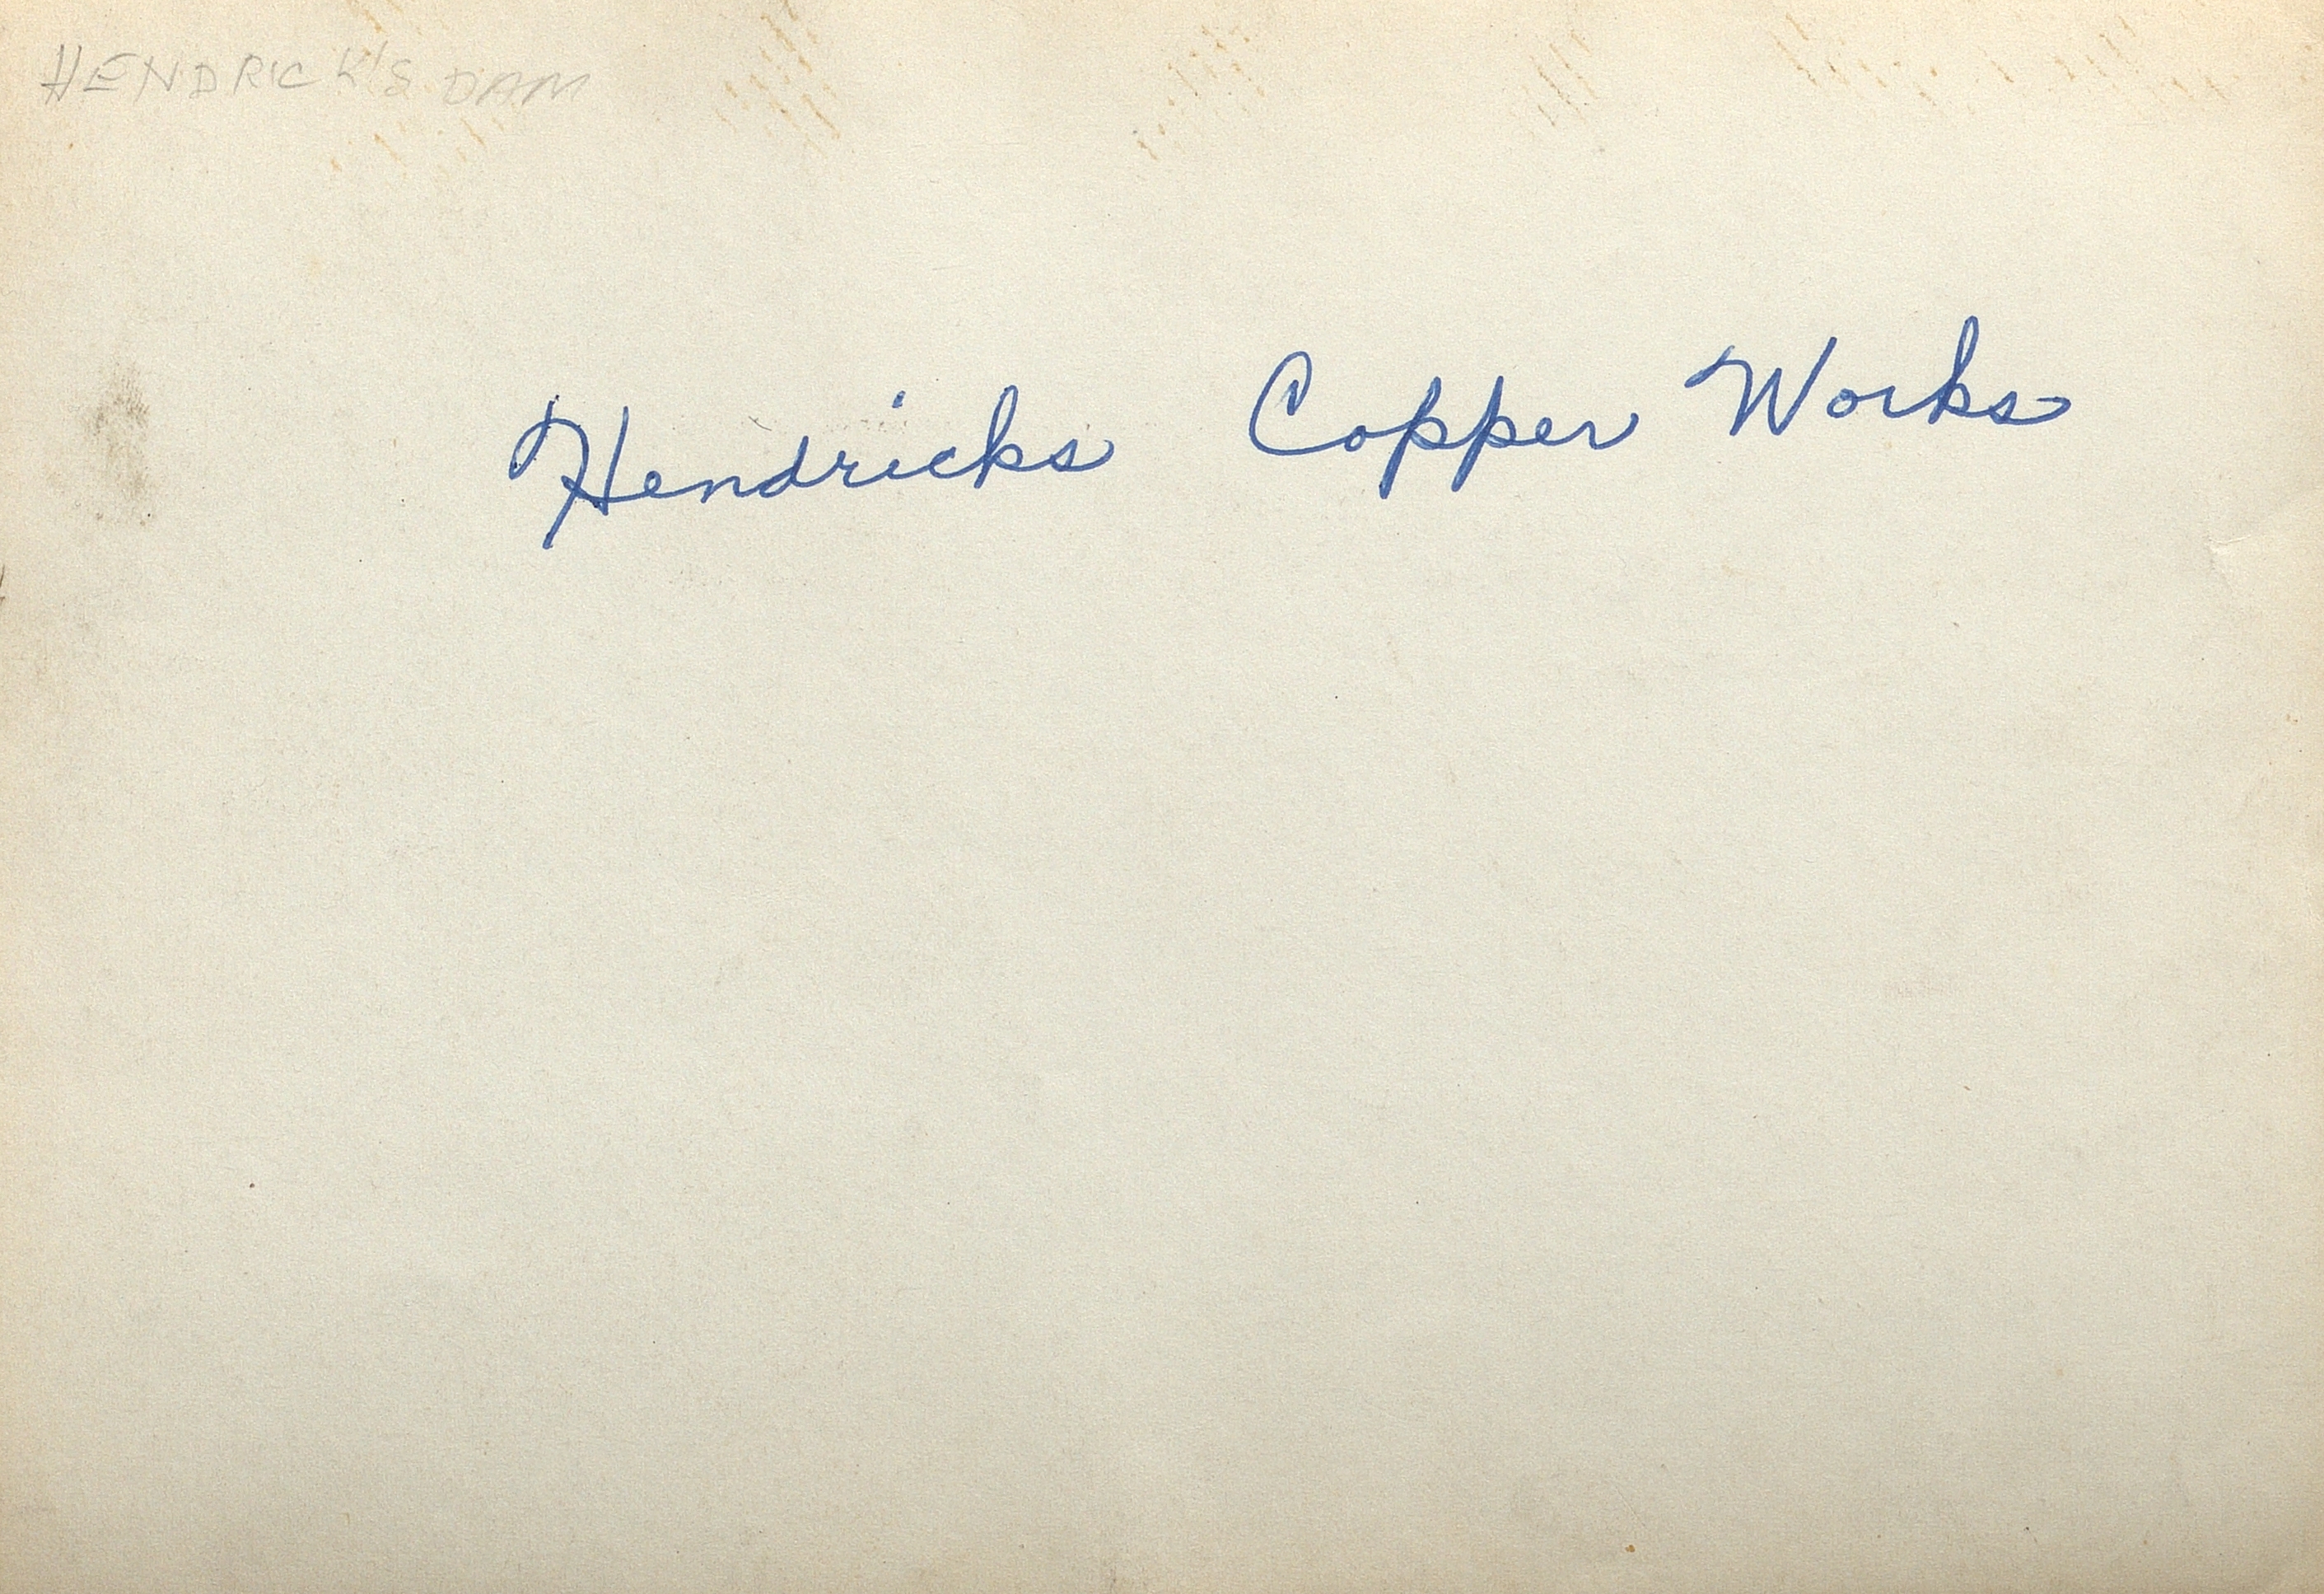 HENDRICK'S DAM
Hendricks Copper Works